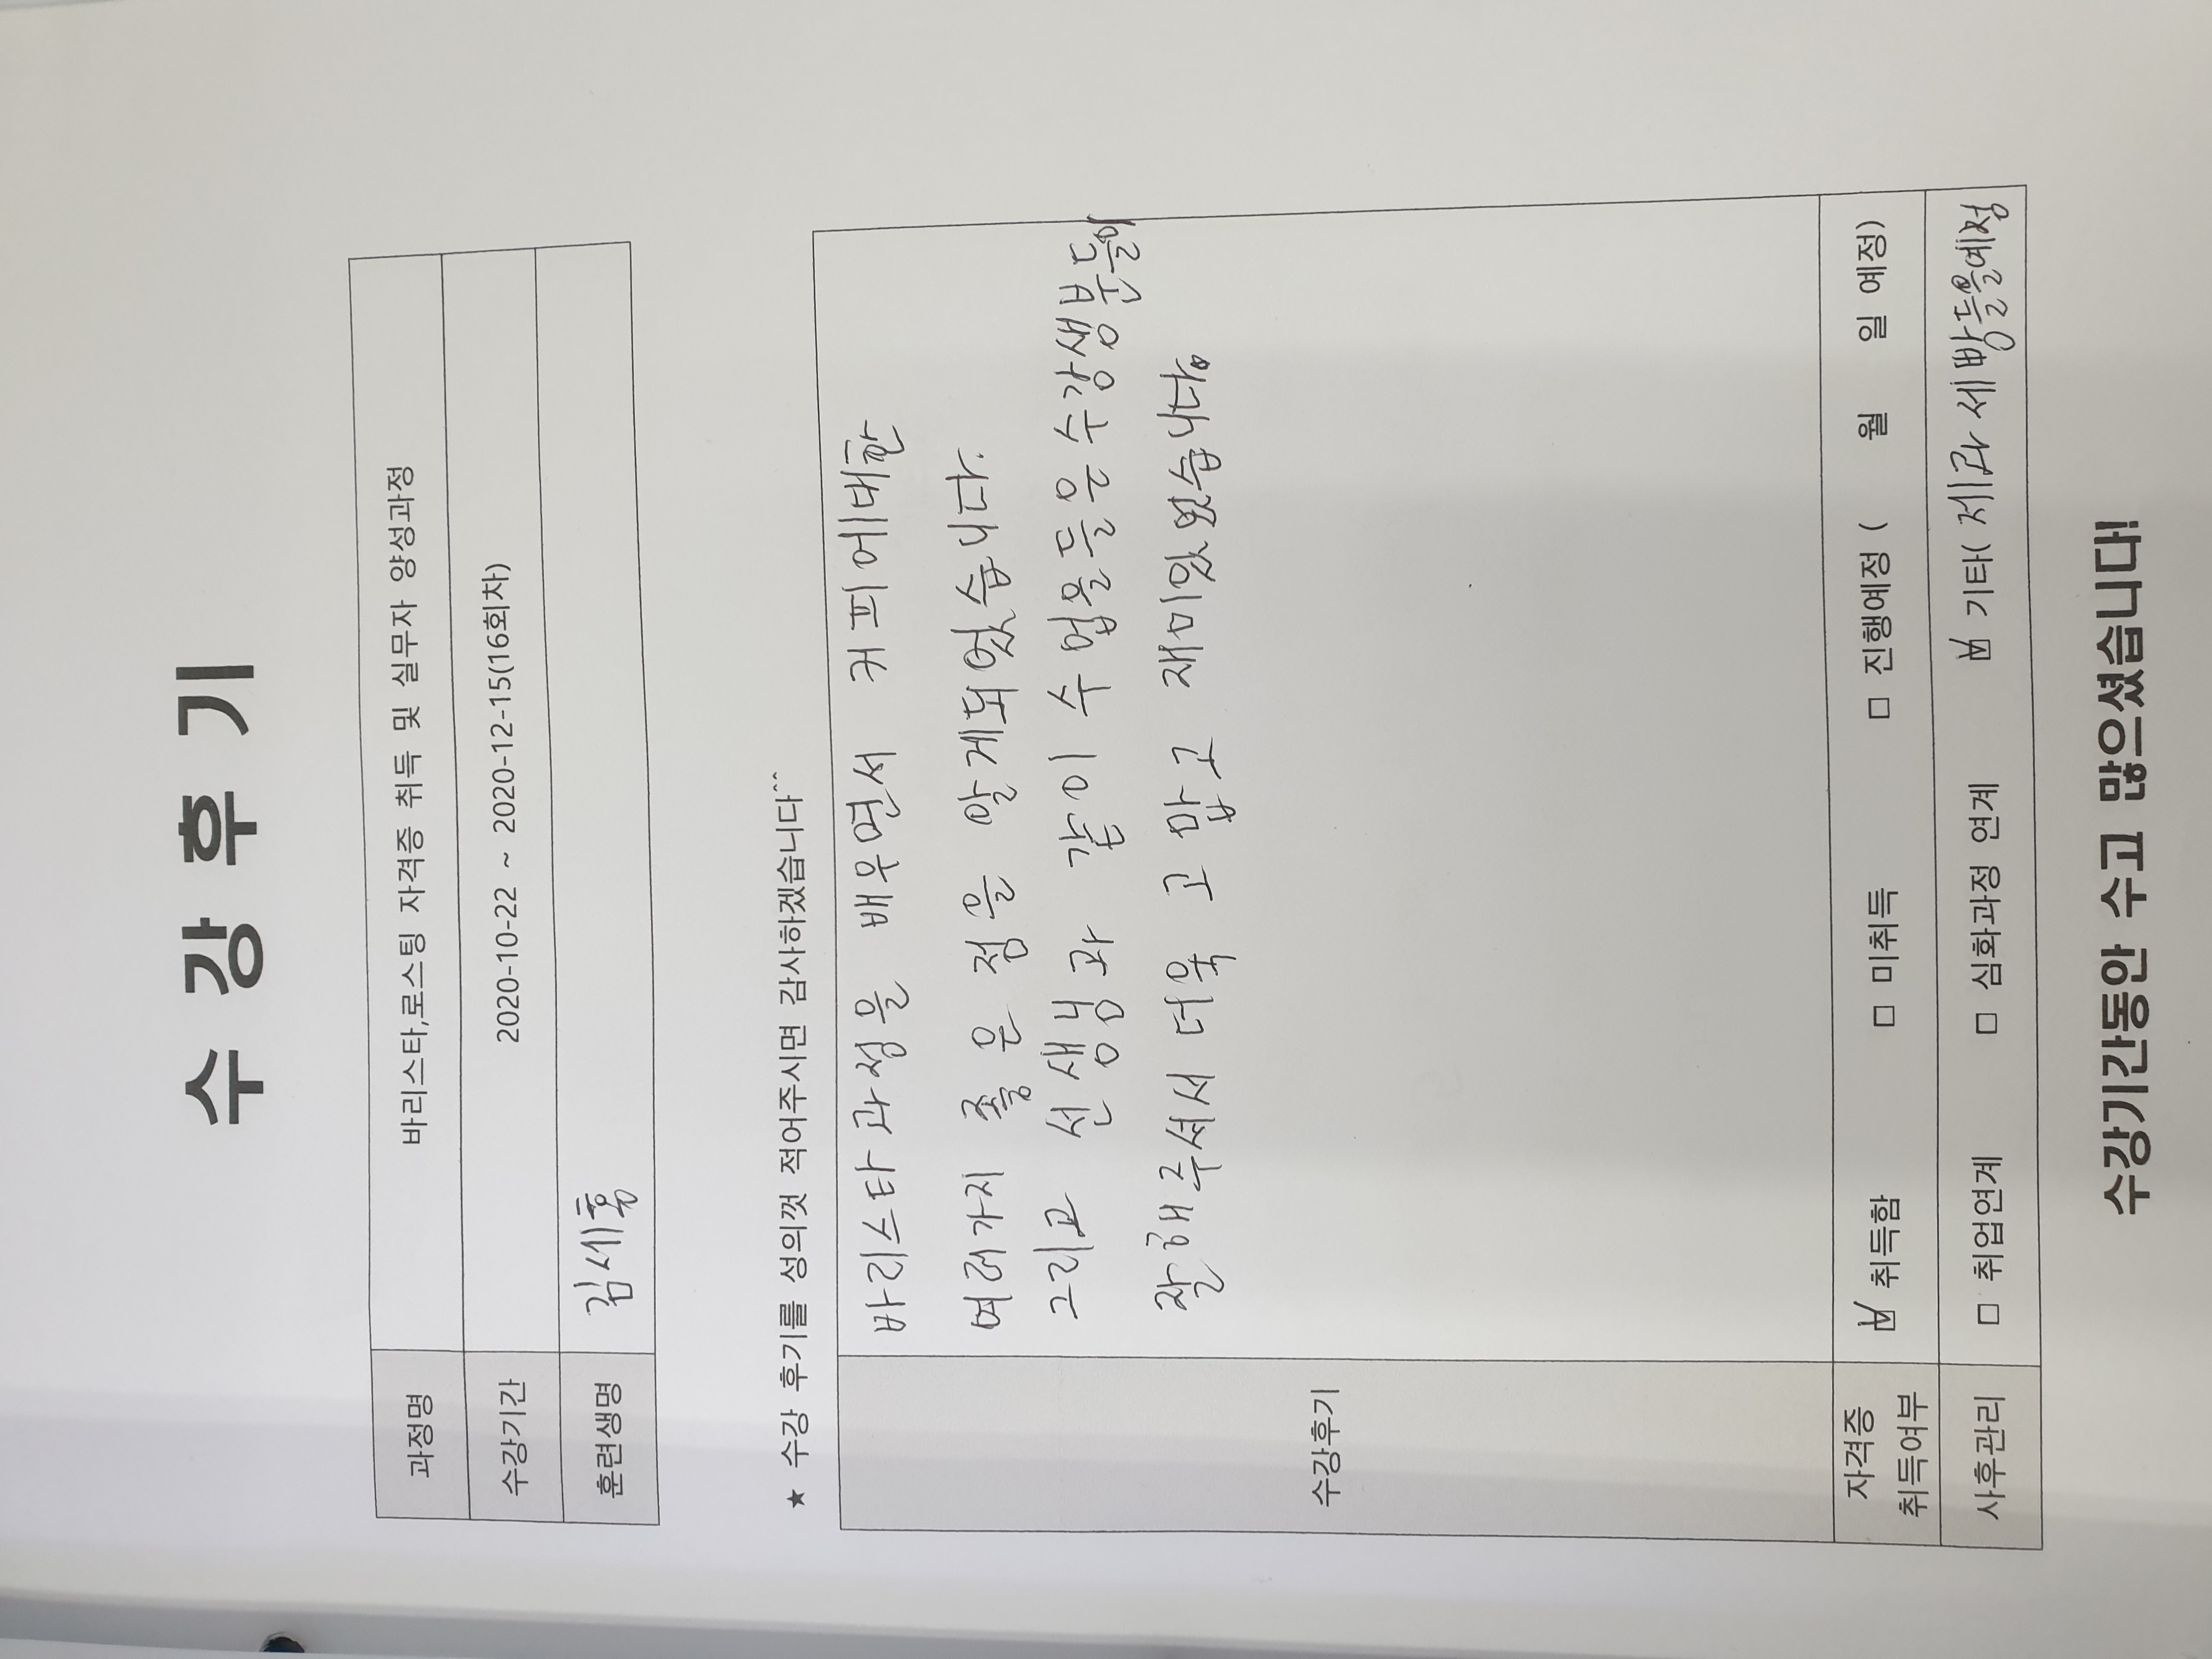 수 강 후 기
과정명 바리스타,로스팅 자격증 취득 및 실무자 양성과정
수강기간 2020-10-22 ~ 2020-12-15(16회차)
훈련생명 김세훈
★ 수강 후기를 성의껏 적어주시면 감사하겠습니다^^
수강후기
바리스타과정을 배우면서 커피에대한
여러가지 좋은 점을 알게되었습니다.
그리고 선생님과 같이 수업을들은 수강생분들이
잘해주셔서 더욱 고맙고 재미있었습니다.
자격증
취득여부
☑ 취득함 □ 미취득 □ 진행예정 ( 월 일 예정)
사후관리 □ 취업연계 □ 심화과정 연계 ☑ 기타( 제과제빵들을예정
수강기간동안 수고 많으셨습니다!